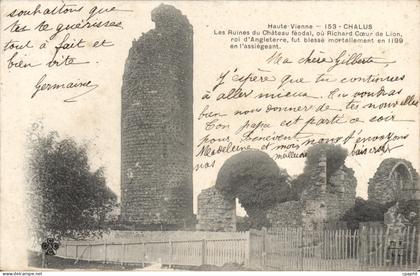 Haute-Vienne — 153 - CHALUS
Les Ruines du Château féodal, où Richard Cœur de Lion,
roi d'Angleterre, fut blessé mortellement en 1199
en l'assiégeant.
Ma chère Gilberte
J'espère que tu continues
à aller mieux. Tu voudras
bien nous donner de tes nouvelles
Ton papa est parti
pour Bénévent
Madeleine et moi nous t'envoyons
nos meilleurs baisers.
souhaitons que
tu sois guérie
tout à fait et
bien vite.
Germaine
© pcrbt